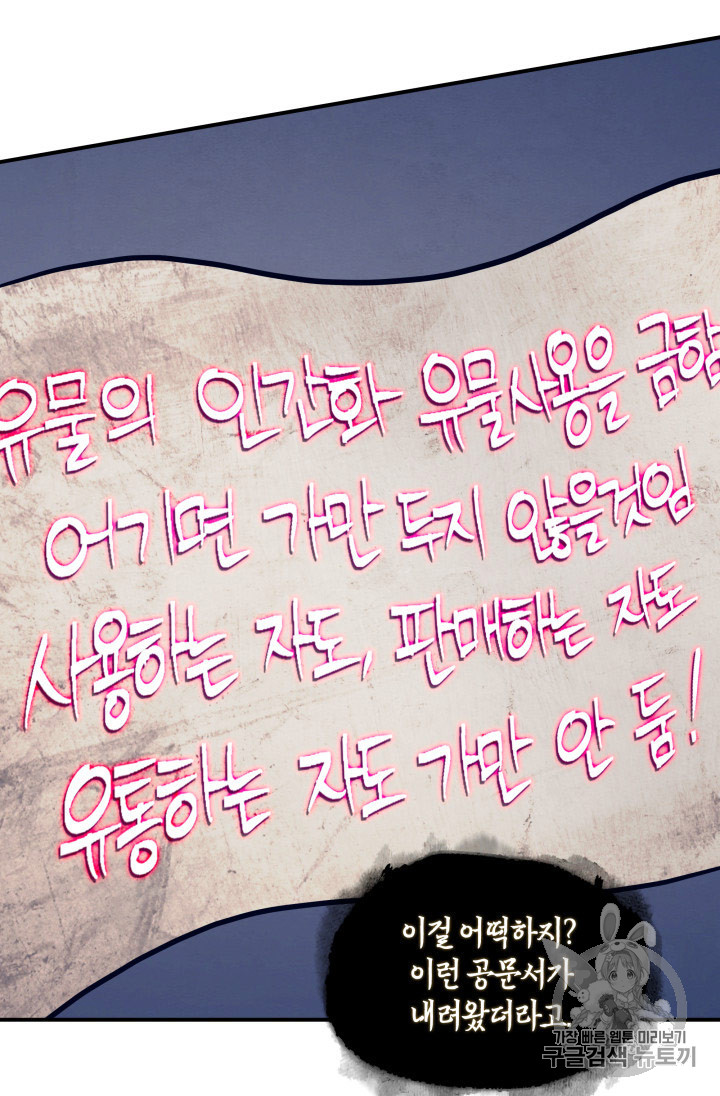 유물의 인간화 유물사용을 금함
어기면 가만 두지 않을것임
사용하는 자도, 판매하는 자도
유통하는 자도 가만 안 둠!
이걸 어떡하지?
이런 공문서가
내려왔더라고.
가장 빠른 웹툰 미리보기
구글검색 뉴토끼